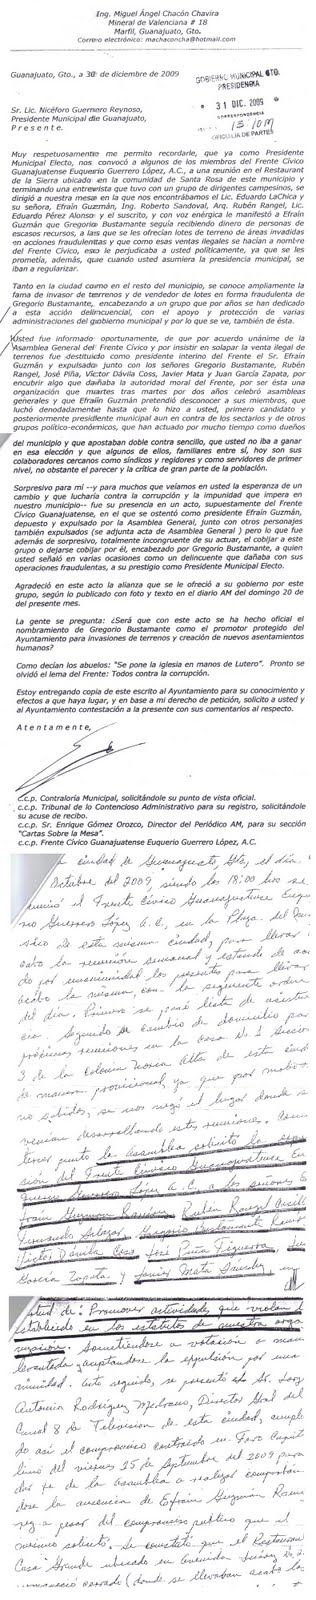 Ing. Miguel Ángel Chacón Chavira
Mineral de Valenciana # 18
Marfil, Guanajuato, Gto.
Correo electrónico: machaconcha@hotmail.com
Guanajuato, Gto., a 30 de diciembre de 2009
GOBIERNO MUNICIPAL GTO.
PRESIDENCIA
* 31 DIC. 2009 *
CORRESPONDENCIA
13:10 M
OFICIALIA DE PARTES
Sr. Lic. Nicéforo Guerrero Reynoso,
Presidente Municipal de Guanajuato,
P r e s e n t e.
Muy respetuosamente me permito recordarle, que ya como Presidente
Municipal Electo, nos convocó a algunos de los miembros del Frente Cívico
Guanajuatense Euquerio Guerrero López, A.C., a una reunión en el Restaurant
de la Sierra ubicado en la comunidad de Santa Rosa de este municipio y
terminando una entrevista que tuvo con un grupo de dirigentes campesinos, se
dirigió a nuestra mesa en la que nos encontrábamos el Lic. Eduardo LaChica y
su señora, Efraín Guzmán, Ing. Roberto Sandoval, Arq. Rubén Rangel, Lic.
Eduardo Pérez Alonso y el suscrito, y con voz enérgica le manifestó a Efraín
Guzmán que Gregorio Bustamante seguía recibiendo dinero de personas de
escasos recursos, a las que se les ofrecían lotes de terreno de áreas invadidas
en acciones fraudulentas y que como esas ventas ilegales se hacían a nombre
del Frente Cívico, eso le perjudicaba a usted políticamente, ya que se les
prometía, además, que cuando usted asumiera la presidencia municipal, se
iban a regularizar.
Tanto en la ciudad como en el resto del municipio, se conoce ampliamente la
fama de invasor de terrenos y de vendedor de lotes en forma fraudulenta de
Gregorio Bustamante, encabezando a un grupo que por años se han dedicado
a esta acción delincuencial, con el apoyo y protección de varias
administraciones del gobierno municipal y por lo que se ve, también de ésta.
Usted fue informado oportunamente, de que por acuerdo unánime de la
Asamblea General del Frente Cívico y por insistir en solapar la venta ilegal de
terrenos fue destituido como presidente interino del Frente el Sr. Efraín
Guzmán y expulsado junto con los señores Gregorio Bustamante, Rubén
Rangel, José Piña, Víctor Dávila Coss, Javier Mata y Juan García Zapata, por
encubrir algo que dañaba la autoridad moral del Frente, por ser ésta una
organización que martes tras martes por dos años celebró asambleas
generales y que Efraín Guzmán pretendió desconocer a sus miembros, que
luchó denodadamente hasta que lo hizo a usted, primero candidato y
posteriormente presidente municipal aun en contra de los sectarios y de otros
grupos político-económicos, que han actuado por mucho tiempo como dueños
del municipio y que apostaban doble contra sencillo, que usted no iba a ganar
en esa elección y que algunos de ellos, familiares entre sí, hoy son sus
colaboradores cercanos como síndicos y regidores y como servidores de primer
nivel, no obstante el parecer y la crítica de gran parte de la población.
Sorpresivo para mí --y para muchos que veíamos en usted la esperanza de un
cambio y que lucharía contra la corrupción y la impunidad que impera en
nuestro municipio-- fue su presencia en un acto, supuestamente del Frente
Cívico Guanajuatense, en el que se ostentó como presidente Efraín Guzmán,
depuesto y expulsado por la Asamblea General, junto con otros personajes
también expulsados (se adjunta acta de Asamblea General ) pero lo que fue
además de sorpresivo, totalmente incongruente de su actuar, el cobijar a este
grupo o dejarse cobijar por él, encabezado por Gregorio Bustamante, a quien
usted señaló en varias ocasiones como un delincuente que dañaba con sus
operaciones fraudulentas, a su prestigio como Presidente Municipal Electo.
Agradeció en este acto la alianza que se le ofreció a su gobierno por este
grupo, según lo publicado con foto y texto en el diario AM del domingo 20 de
del presente mes.
La gente se pregunta: ¿Será que con este acto se ha hecho oficial el
nombramiento de Gregorio Bustamante como el promotor protegido del
Ayuntamiento para invasiones de terrenos y creación de nuevos asentamientos
humanos?
Como decían los abuelos: "Se pone la iglesia en manos de Lutero". Pronto se
olvidó el lema del Frente: Todos contra la corrupción.
Estoy entregando copia de este escrito al Ayuntamiento para su conocimiento y
efectos a que haya lugar, y en base a mi derecho de petición, solicito a usted y
al Ayuntamiento contestación a la presente con sus comentarios al respecto.
A t e n t a m e n t e,
c.c.p. Contraloría Municipal, solicitándole su punto de vista oficial.
c.c.p. Tribunal de lo Contencioso Administrativo para su registro, solicitándole
su acuse de recibo.
c.c.p. Sr. Enrique Gómez Orozco, Director del Periódico AM, para su sección
"Cartas Sobre la Mesa".
c.c.p. Frente Cívico Guanajuatense Euquerio Guerrero López, A.C.
ciudad de Guanajuato, Gto, el día
Octubre del 2009, siendo las 18:00 hrs se
reunió el Frente Cívico Guanajuatense Euque
rio Guerrero López A.C., en la Plaza del
de esta misma ciudad, para llevar
cabo la reunión semanal y estando de acuer
do por unanimidad los presentes para llevar
acabo la misma, con la siguiente orden
del día. Primero se pasó lista de asisten
cia. Segundo se cambio de domicilio para
próximas reuniones en la casa No. 1 Sección
3 de la colonia Noria Alta de esta ciudad
de manera provicional, ya que por motivos
no sabidos, se nos negó el lugar donde se
venían desarrollando estas reuniones. Como
tercer punto la asamblea solicitó la expul
sión del Frente Cívico Guanajuatense Eu
querio Guerrero López A.C. a los señores E
fraín Guzmán Ramírez, Rubén Rangel
Fernando Salazar, Gregorio Bustamante
Víctor Dávila Coss, José Piña Figueroa, Juan
García Zapata y Javier Mata Sánchez, en
virtud de: Promover actividades que violan lo
establecido en los estatutos de nuestra orga
nización. Sometiéndose a votación a mano
levantada y aceptandose la expulsión por una
nimidad. Acto seguido, se presentó el Sr. Jorge
Antonio Rodríguez Medrano, Director Gral del
Canal 8 de Television de esta ciudad, cumplien
do así el compromiso contraído en
del viernes 25 de Septiembre del 2009 para
dar fe de la asamblea a realizar comproban
dose la ausencia de Efraín Guzmán Ramí
rez a pesar del compromiso público que el
mismo solicitó. Se constató que el Restaurant
Casa Grande ubicado en Avenida Juárez No.
permaneció cerrado (donde se llevaban acabo las